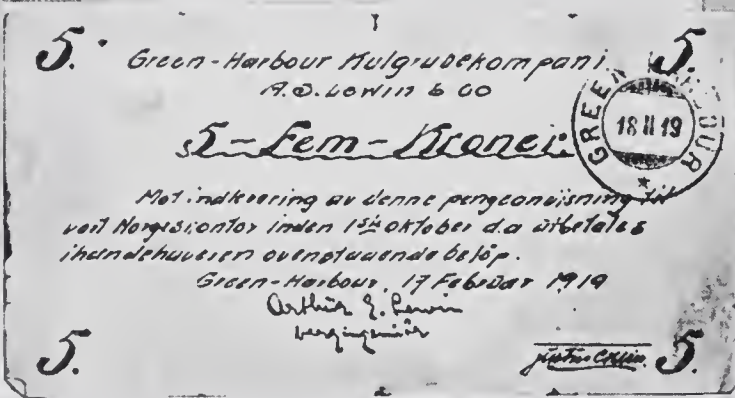 5. 5.
Green-Harbour Kulgrubekompani.
A.E. Lewin & Co
5-Fem-Kroner.
GREEN HARBOUR
18 II 19
Mot indlevering av denne pengeanvisning til
vort Norgeskontor inden 1ste oktober d.a utbetales
ihændehaveren ovenstaaende beløp.
Green-Harbour, 17 Februar 1919
Arthur E. Lewin
bergingeniør
5. 5.